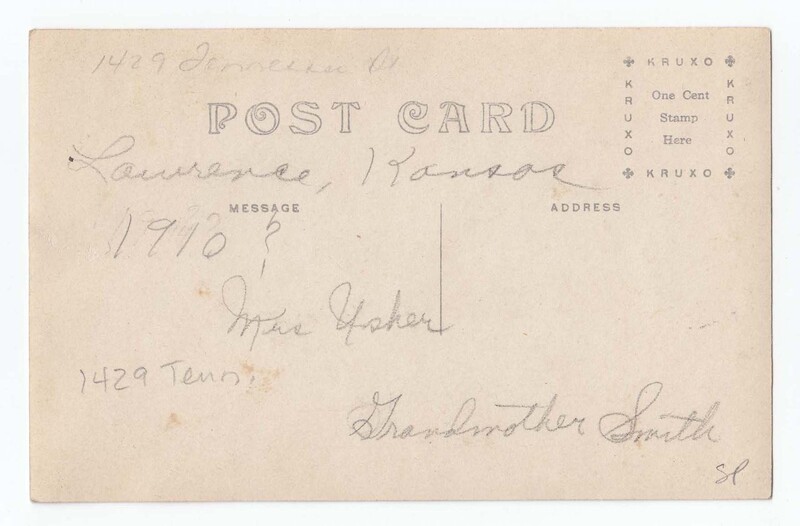 1429 Tennessee St
KRUXO
KRUXO
KRUXO
One Cent
Stamp
Here
KRUXO
POST CARD
Lawrence, Kansas
MESSAGE
ADDRESS
1910?
Mrs Usher
1429 Tenn.
Grandmother Smith